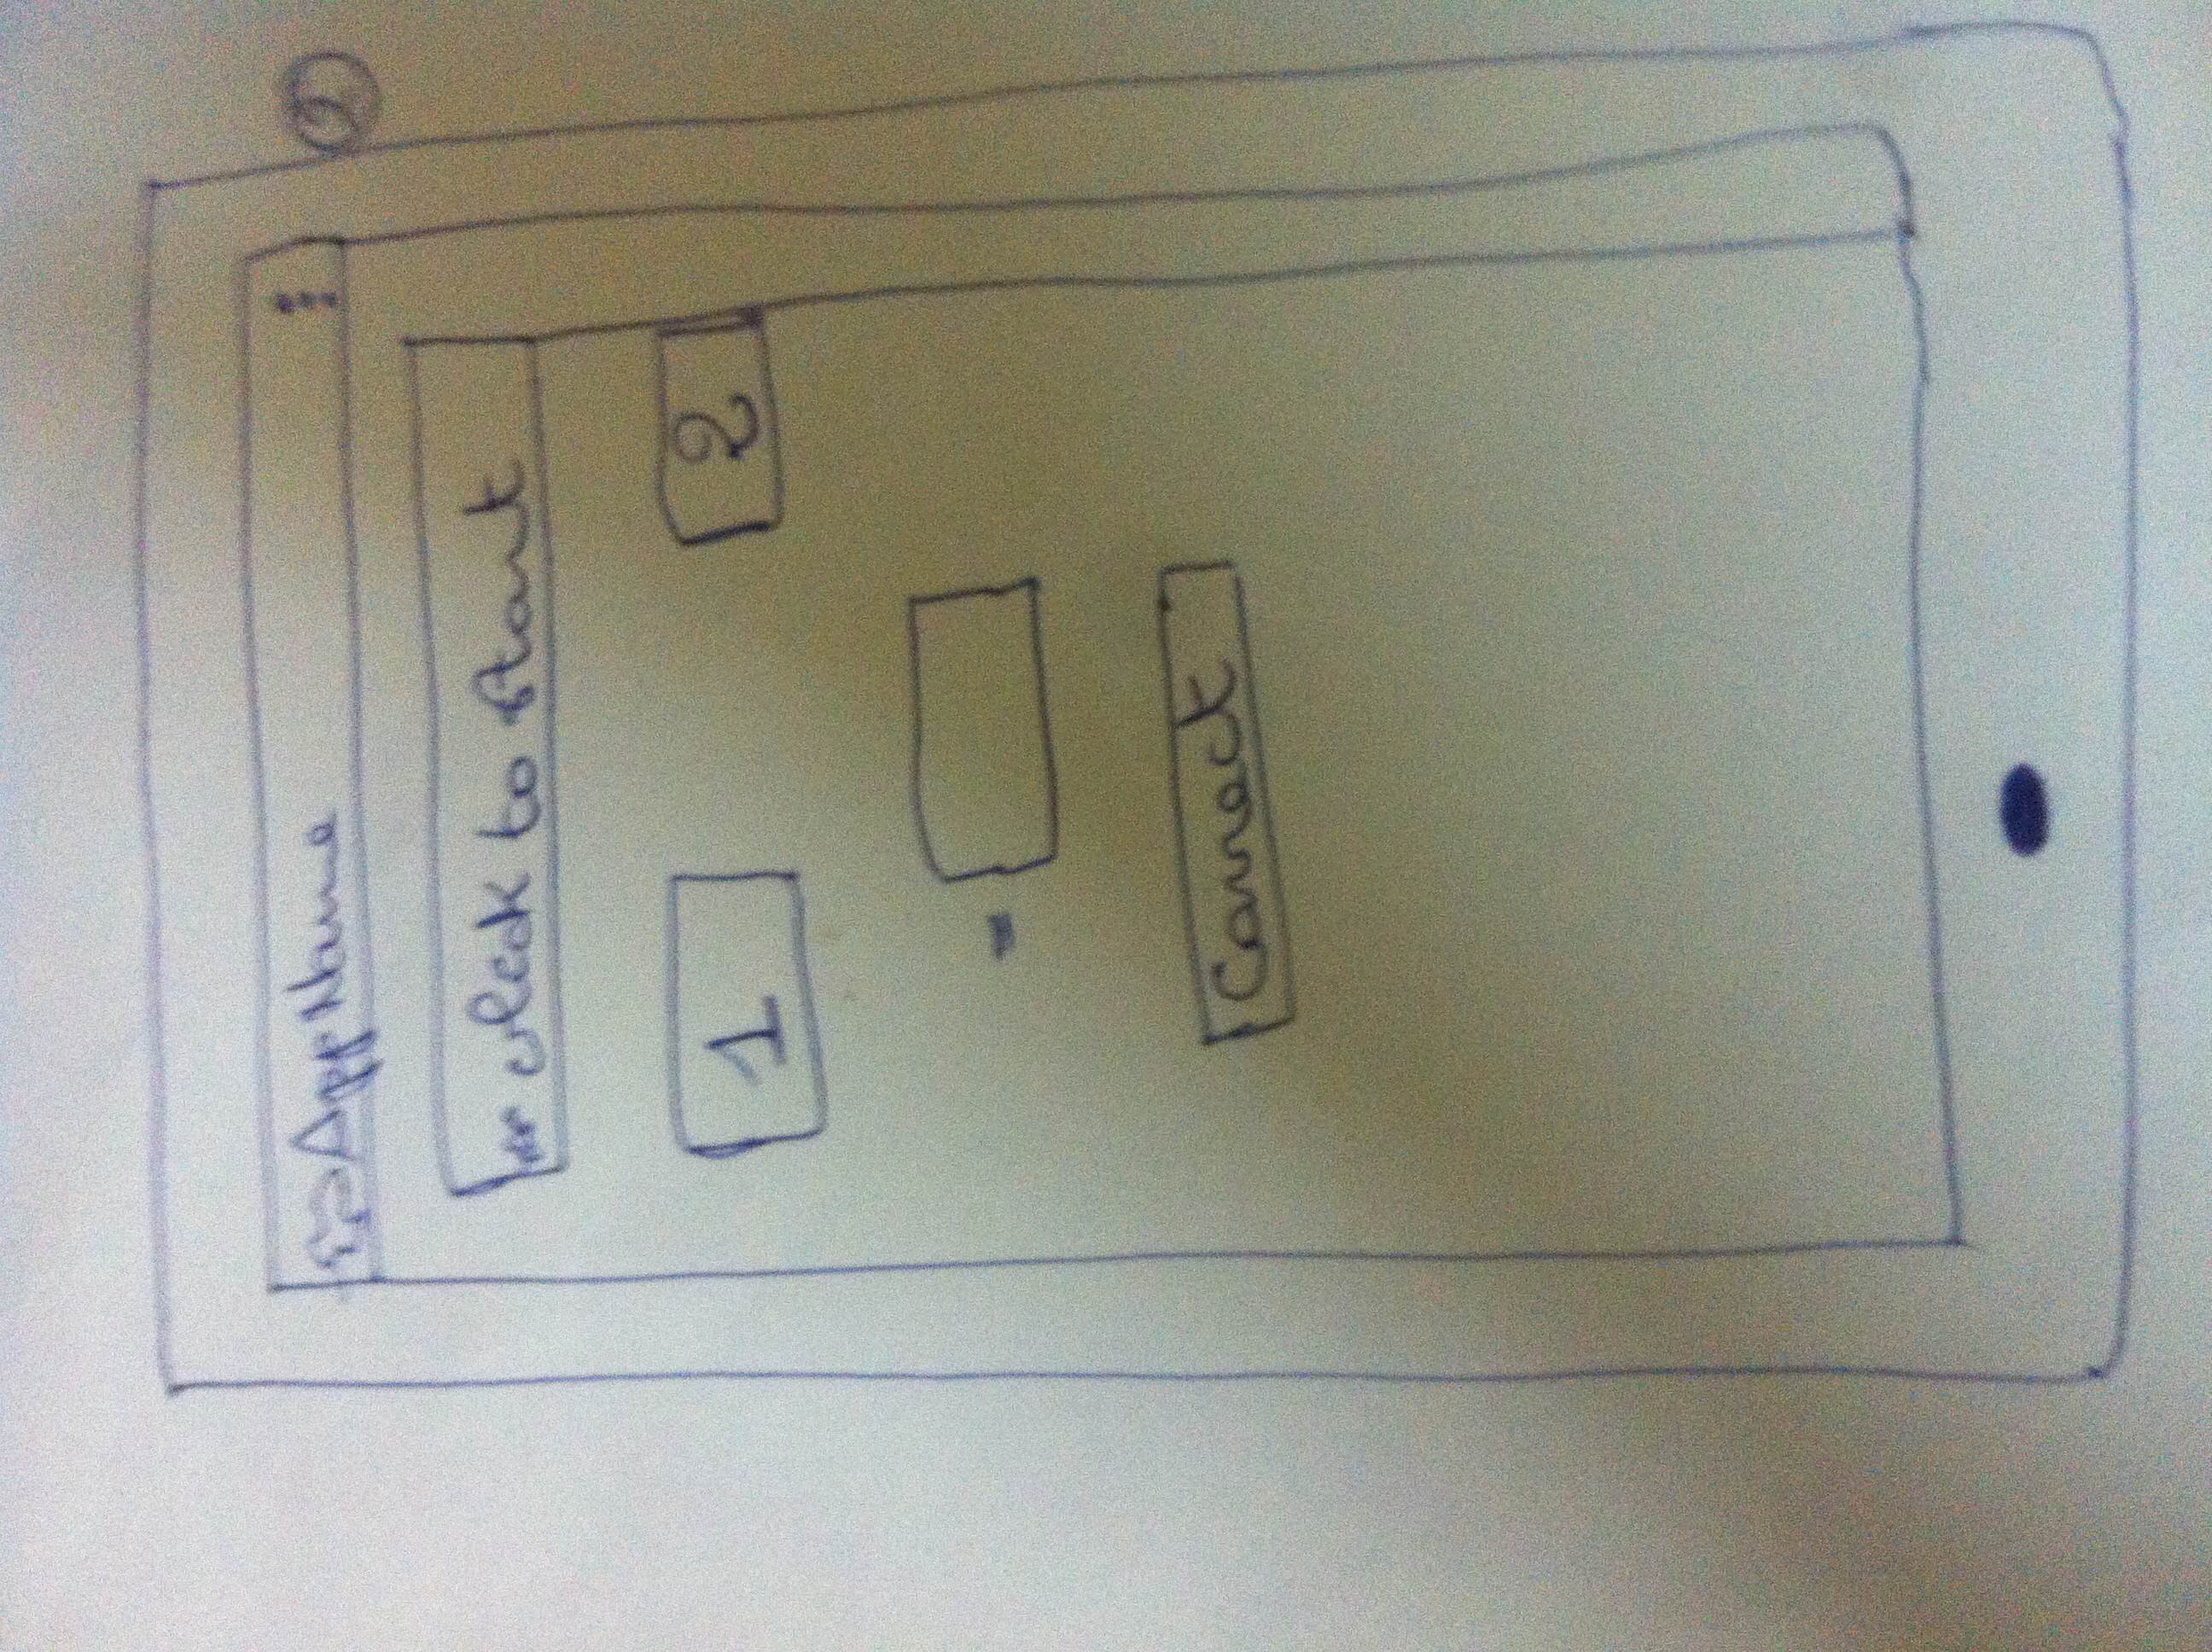 AppName
click to start
1 2
=
Correct